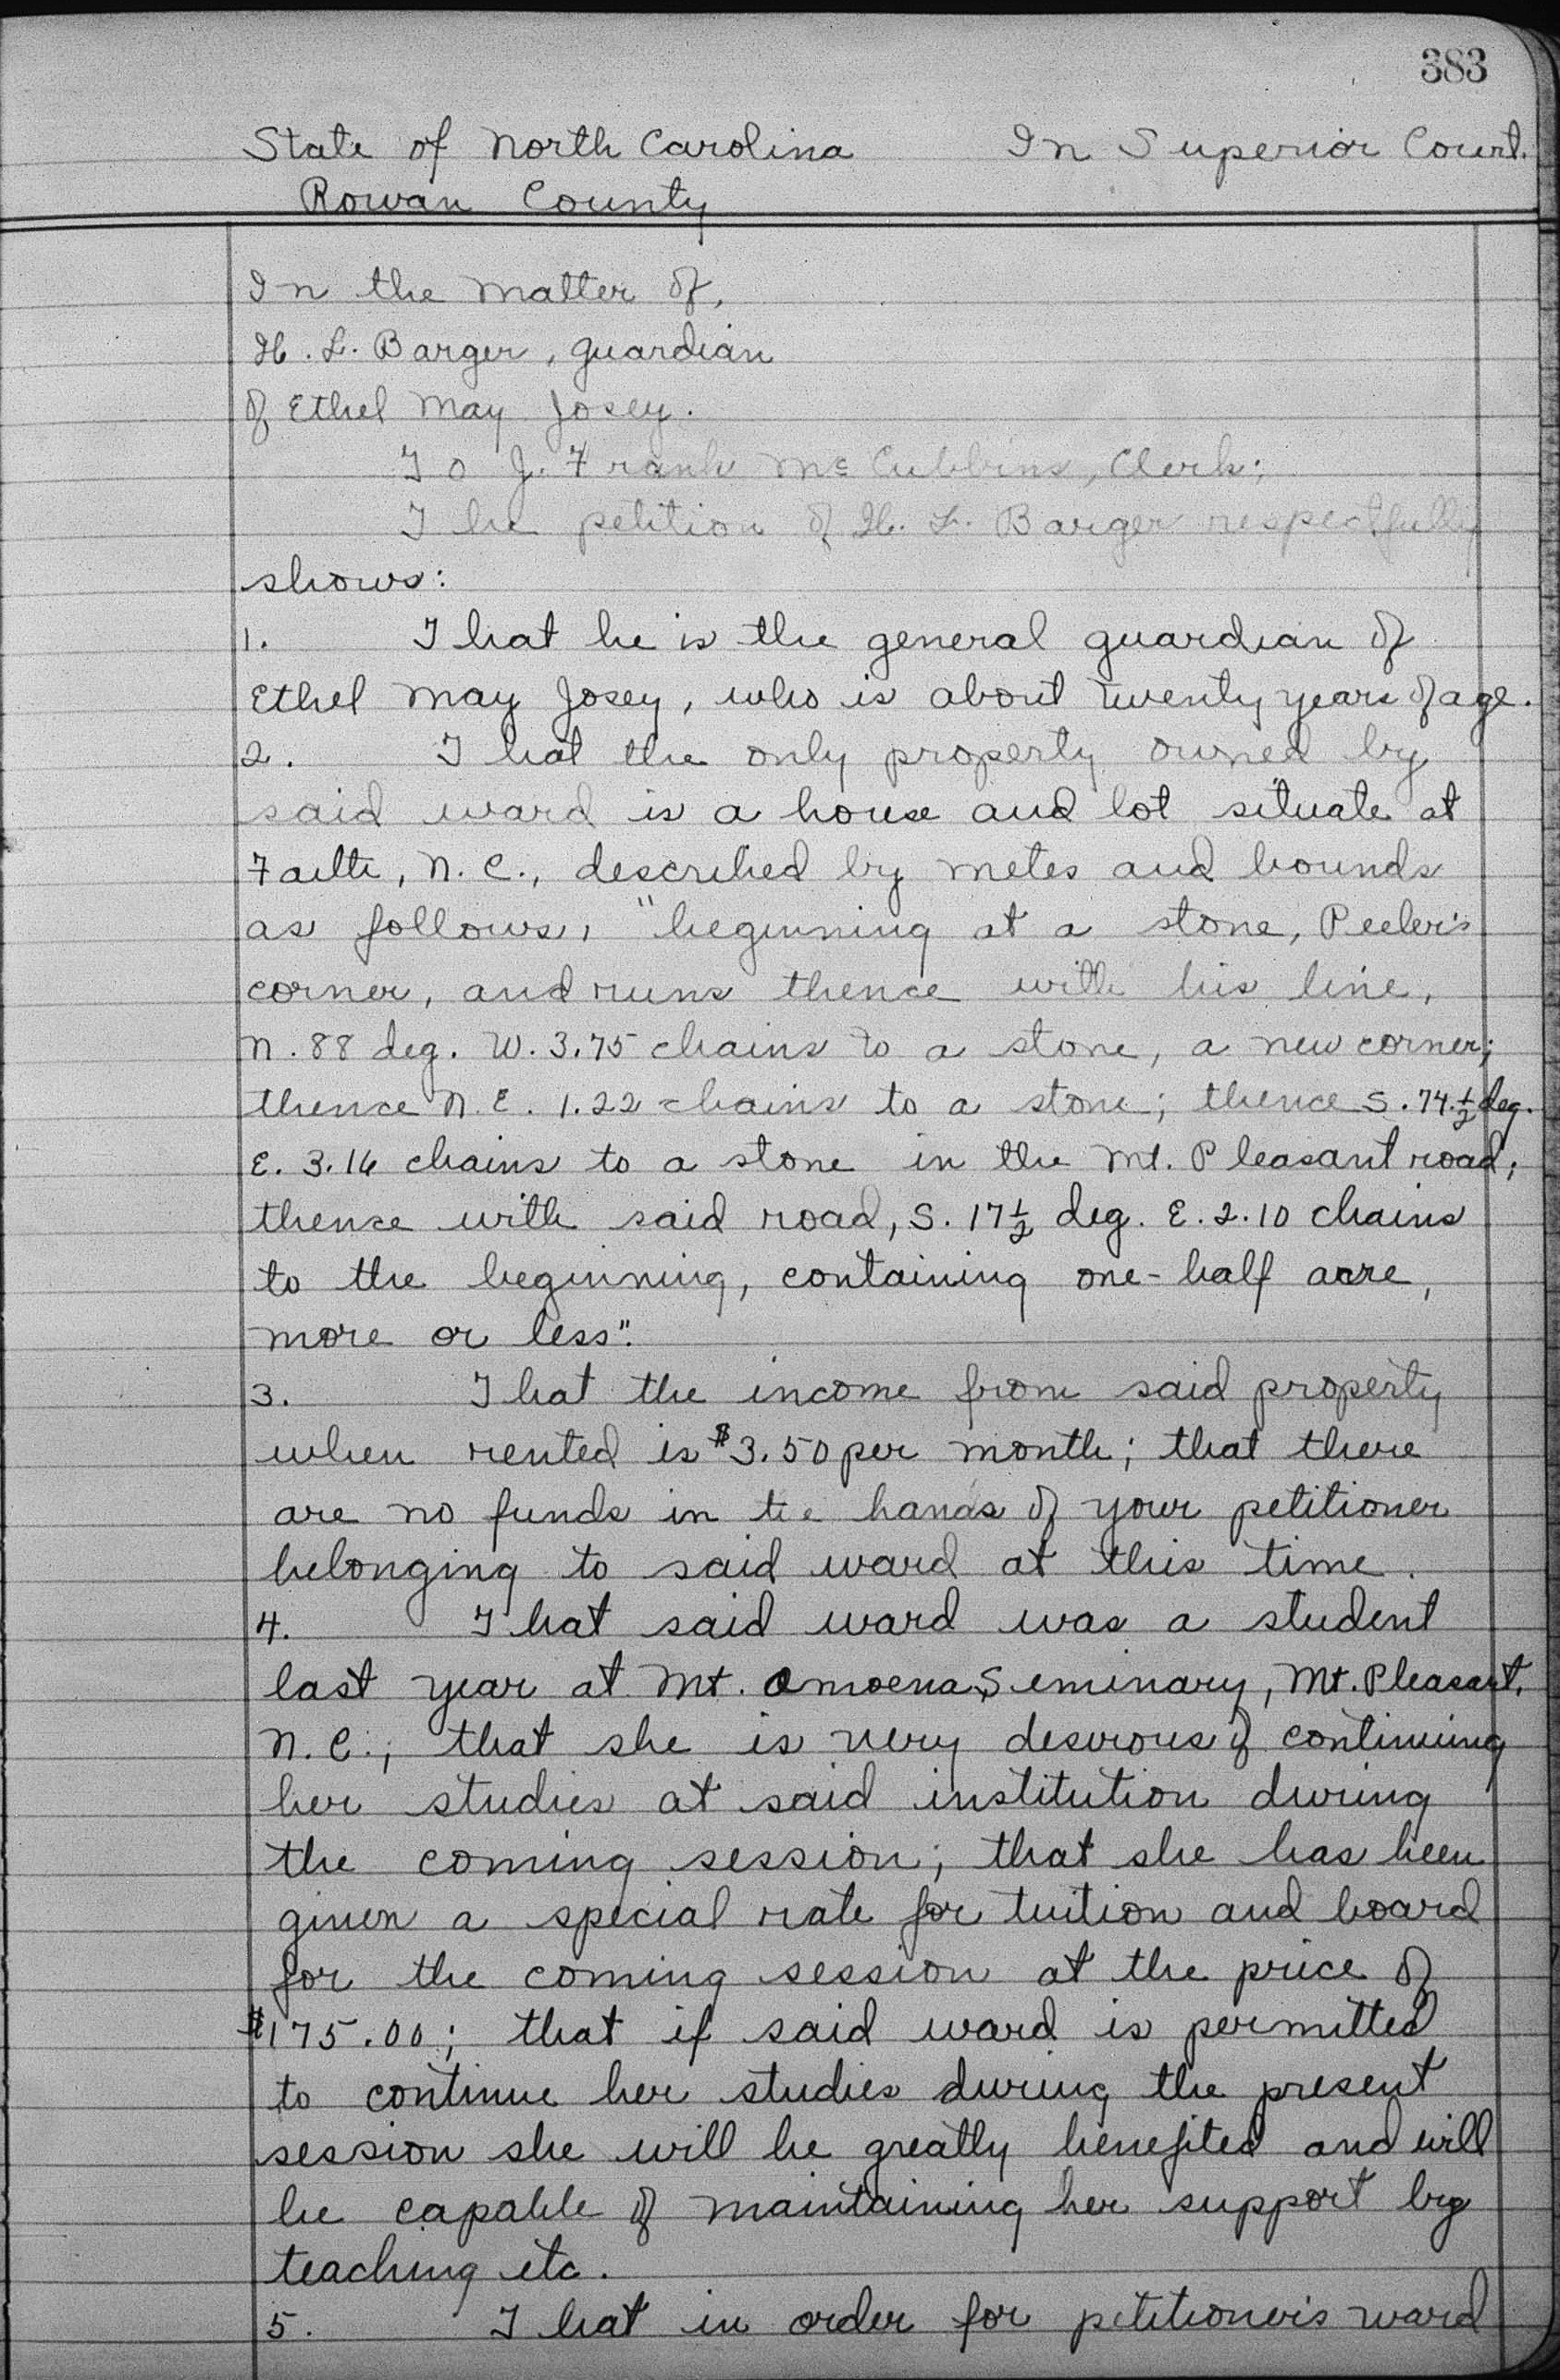 383
State of North Carolina In Superior Court.
Rowan County
In the matter of,
H. L. Barger, guardian
of Ethel May Josey.
To J. Frank McCubbins, Clerk:
The petition of H. L. Barger respectfully
shows:
1. That he is the general guardian of
Ethel May Josey, who is about twenty years of age.
2. That the only property owned by
said ward is a house and lot situate at
Faith, N. C., described by metes and bounds
as follows, "beginning at a stone, Peeler's
corner, and runs thence with his line,
N. 88 deg. W. 3.75 chains to a stone, a new corner;
thence N. E. 1.22 chains to a stone; thence S. 74 1/2 deg.
E. 3.16 chains to a stone in the Mt. Pleasant road;
thence with said road, S. 17 1/2 deg. E. 2.10 chains
to the beginning, containing one-half acre,
more or less".
3. That the income from said property
when rented is $3.50 per month; that there
are no funds in te hands of your petitioner
belonging to said ward at this time.
4. That said ward was a student
last year at Mt. Amoena Seminary, Mt. Pleasant,
N. C.; that she is very desirous of continuing
her studies at said institution during
the coming session; that she has been
given a special rate for tuition and board
for the coming session at the price of
$175.00; that if said ward is permitted
to continue her studies during the present
session she will be greatly benefited and will
be capable of maintaining her support by
teaching etc.
5. That in order for petitioner's ward